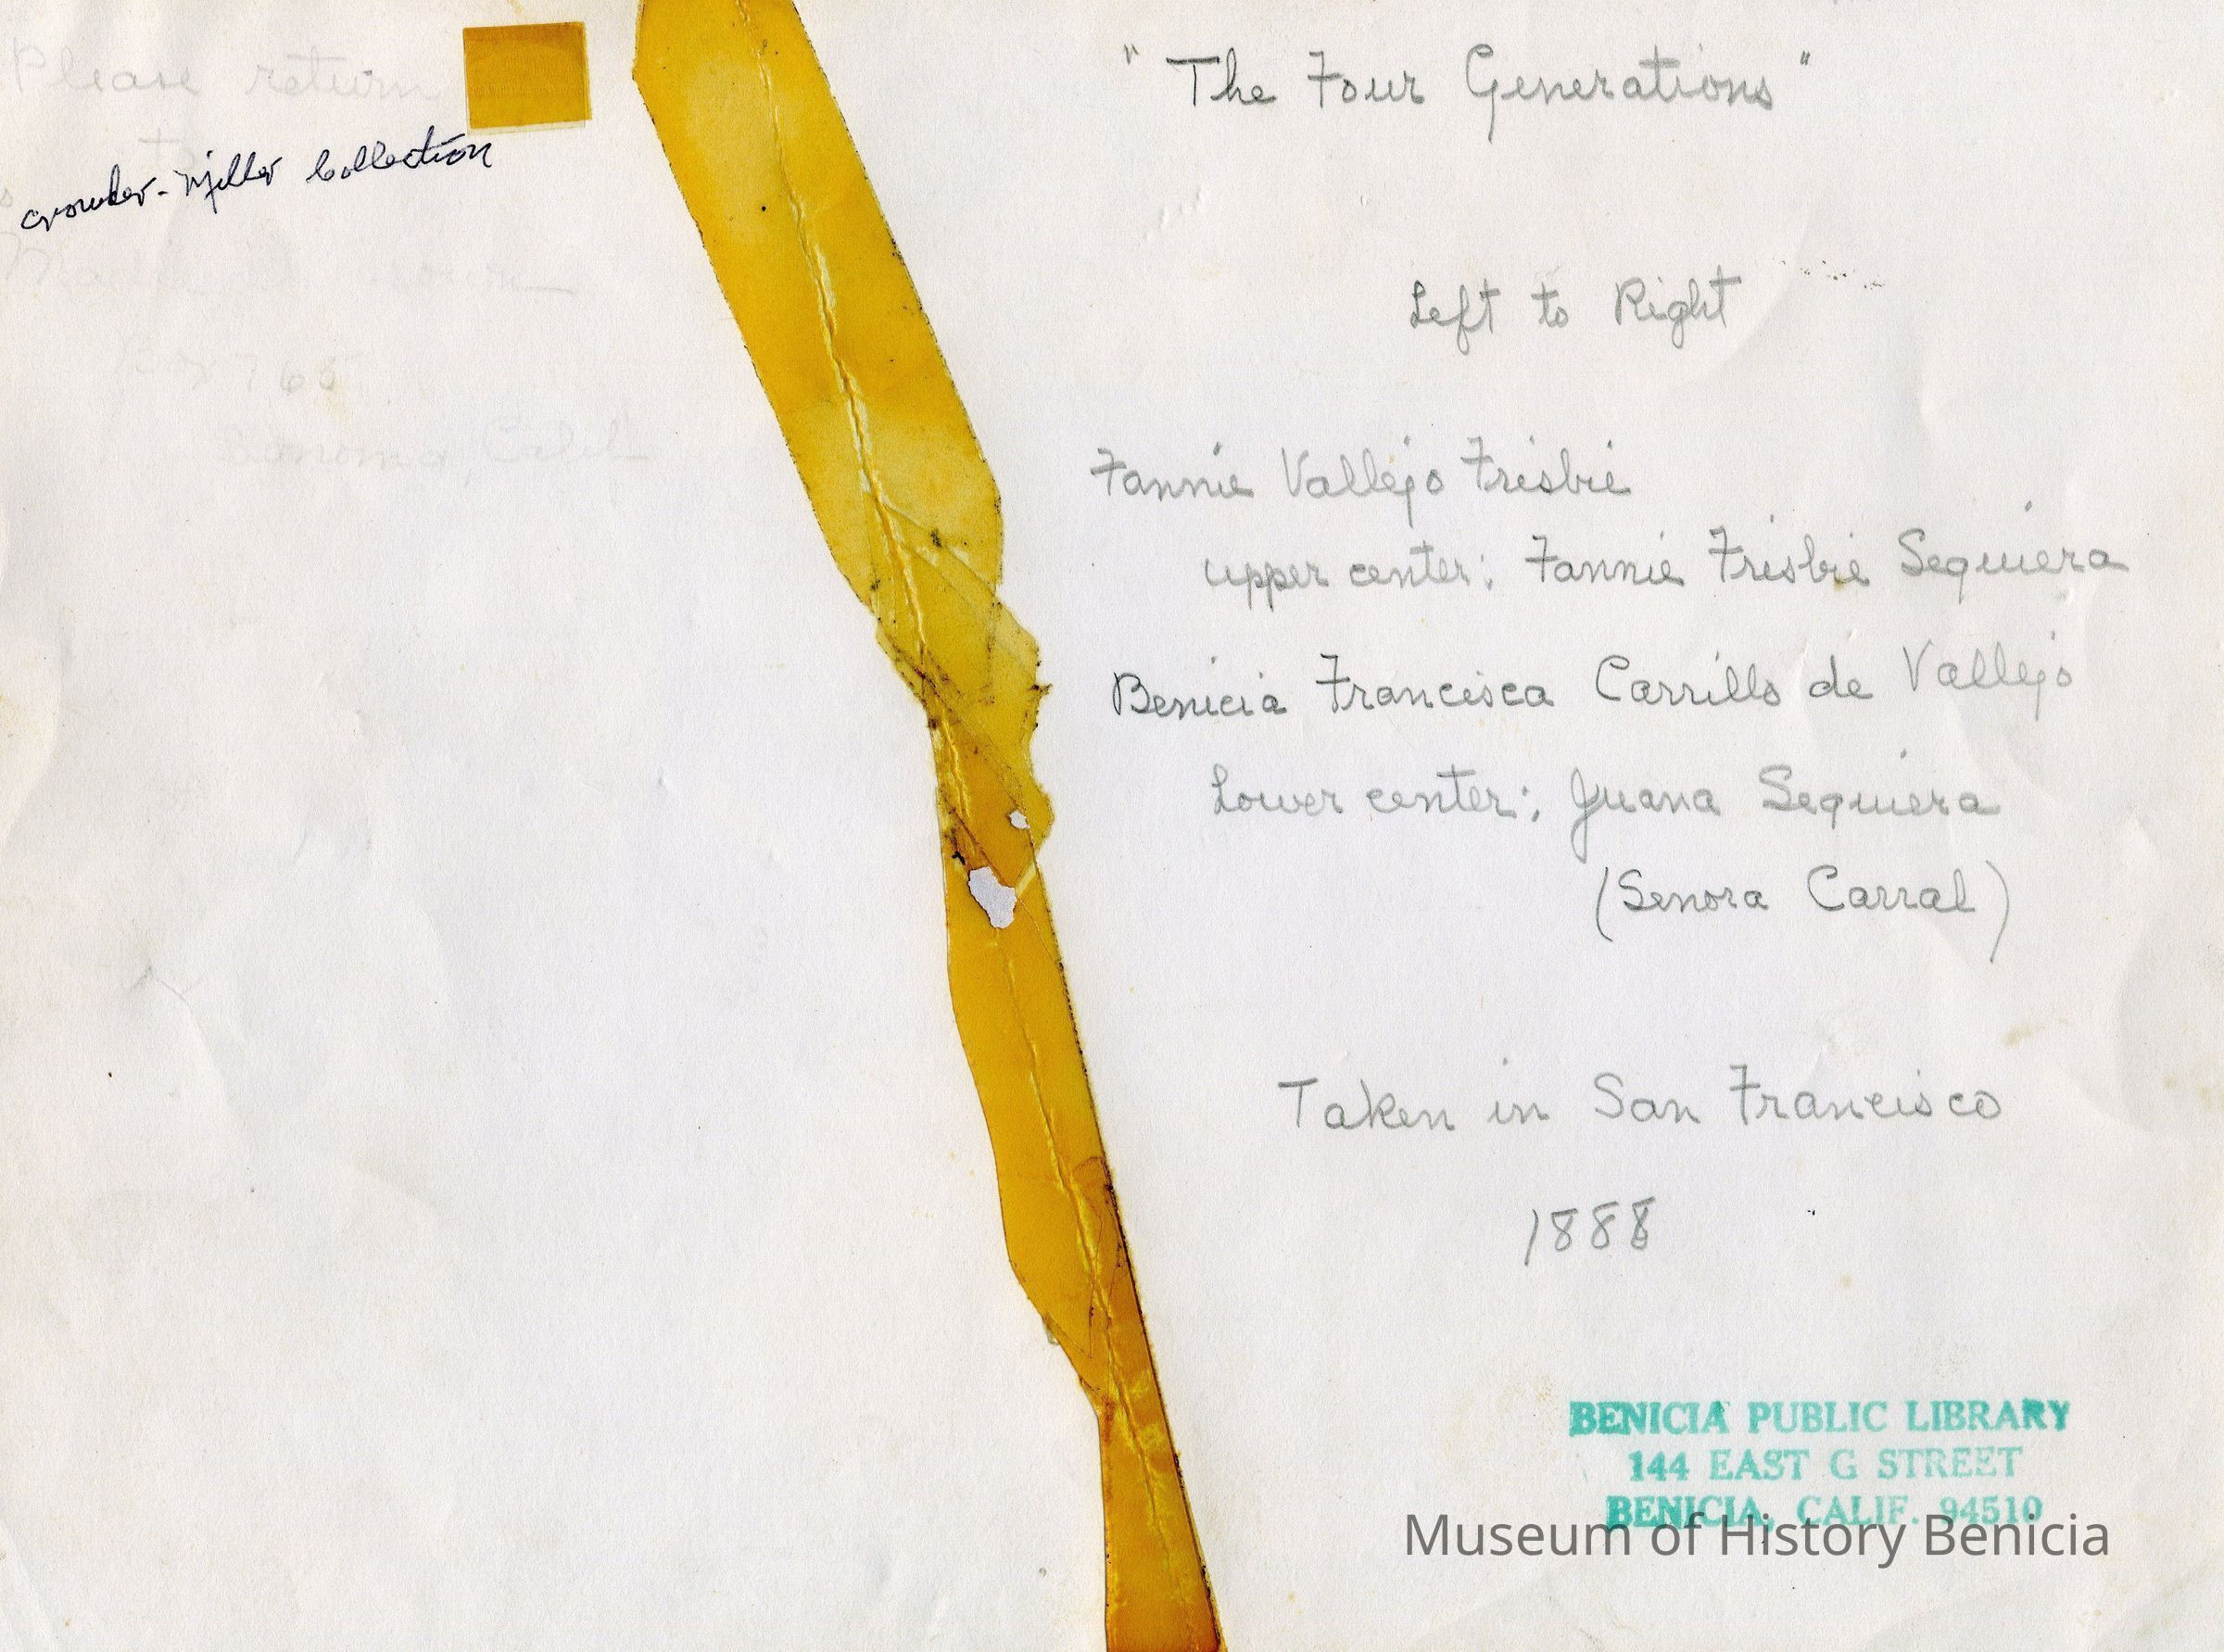 Please return
to
Crowder-Miller Collection
Box 765
Sonoma, Calif
"The Four Generations"
Left to Right
Fannie Vallejo Frisbie
upper center: Fannie Frisbie Sequiera
Benicia Francisca Carrillo de Vallejo
Lower center: Juana Sequiera
(Senora Carral)
Taken in San Francisco
1888
BENICIA PUBLIC LIBRARY
144 EAST G STREET
BENICIA, CALIF. 94510
Museum of History Benicia